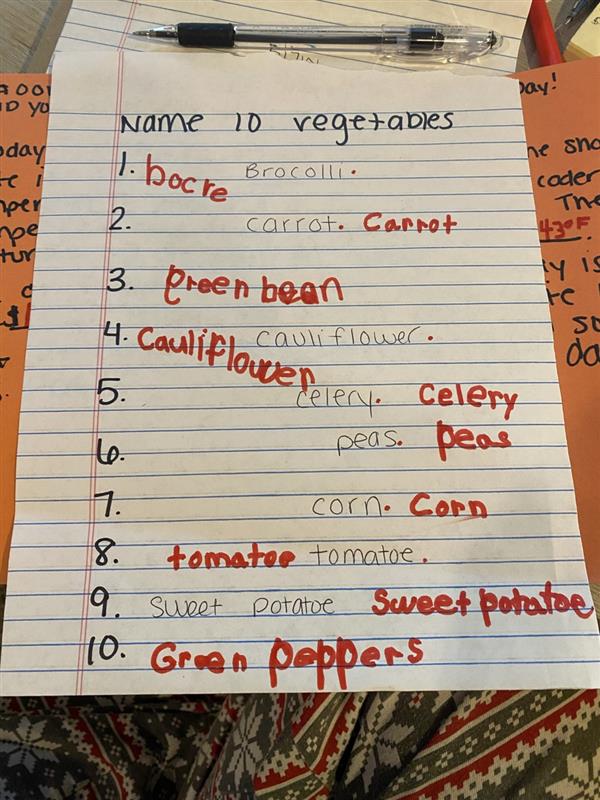 Name 10 vegetables
1. bocre Brocolli.
2. carrot. Carrot
3. Green bean
4. Cauliflower cauliflower.
5. celery. Celery
6. peas. Peas
7. corn. Corn
8. tomatoe tomatoe.
9. sweet potatoe Sweet potatoe
10. Green peppers
day!
The
43°F